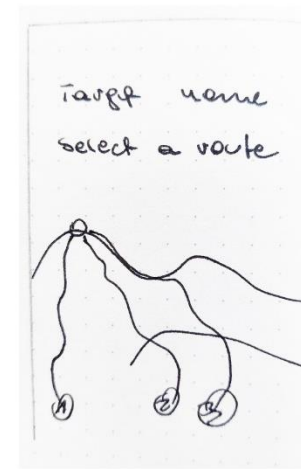 Target name
select a route
A